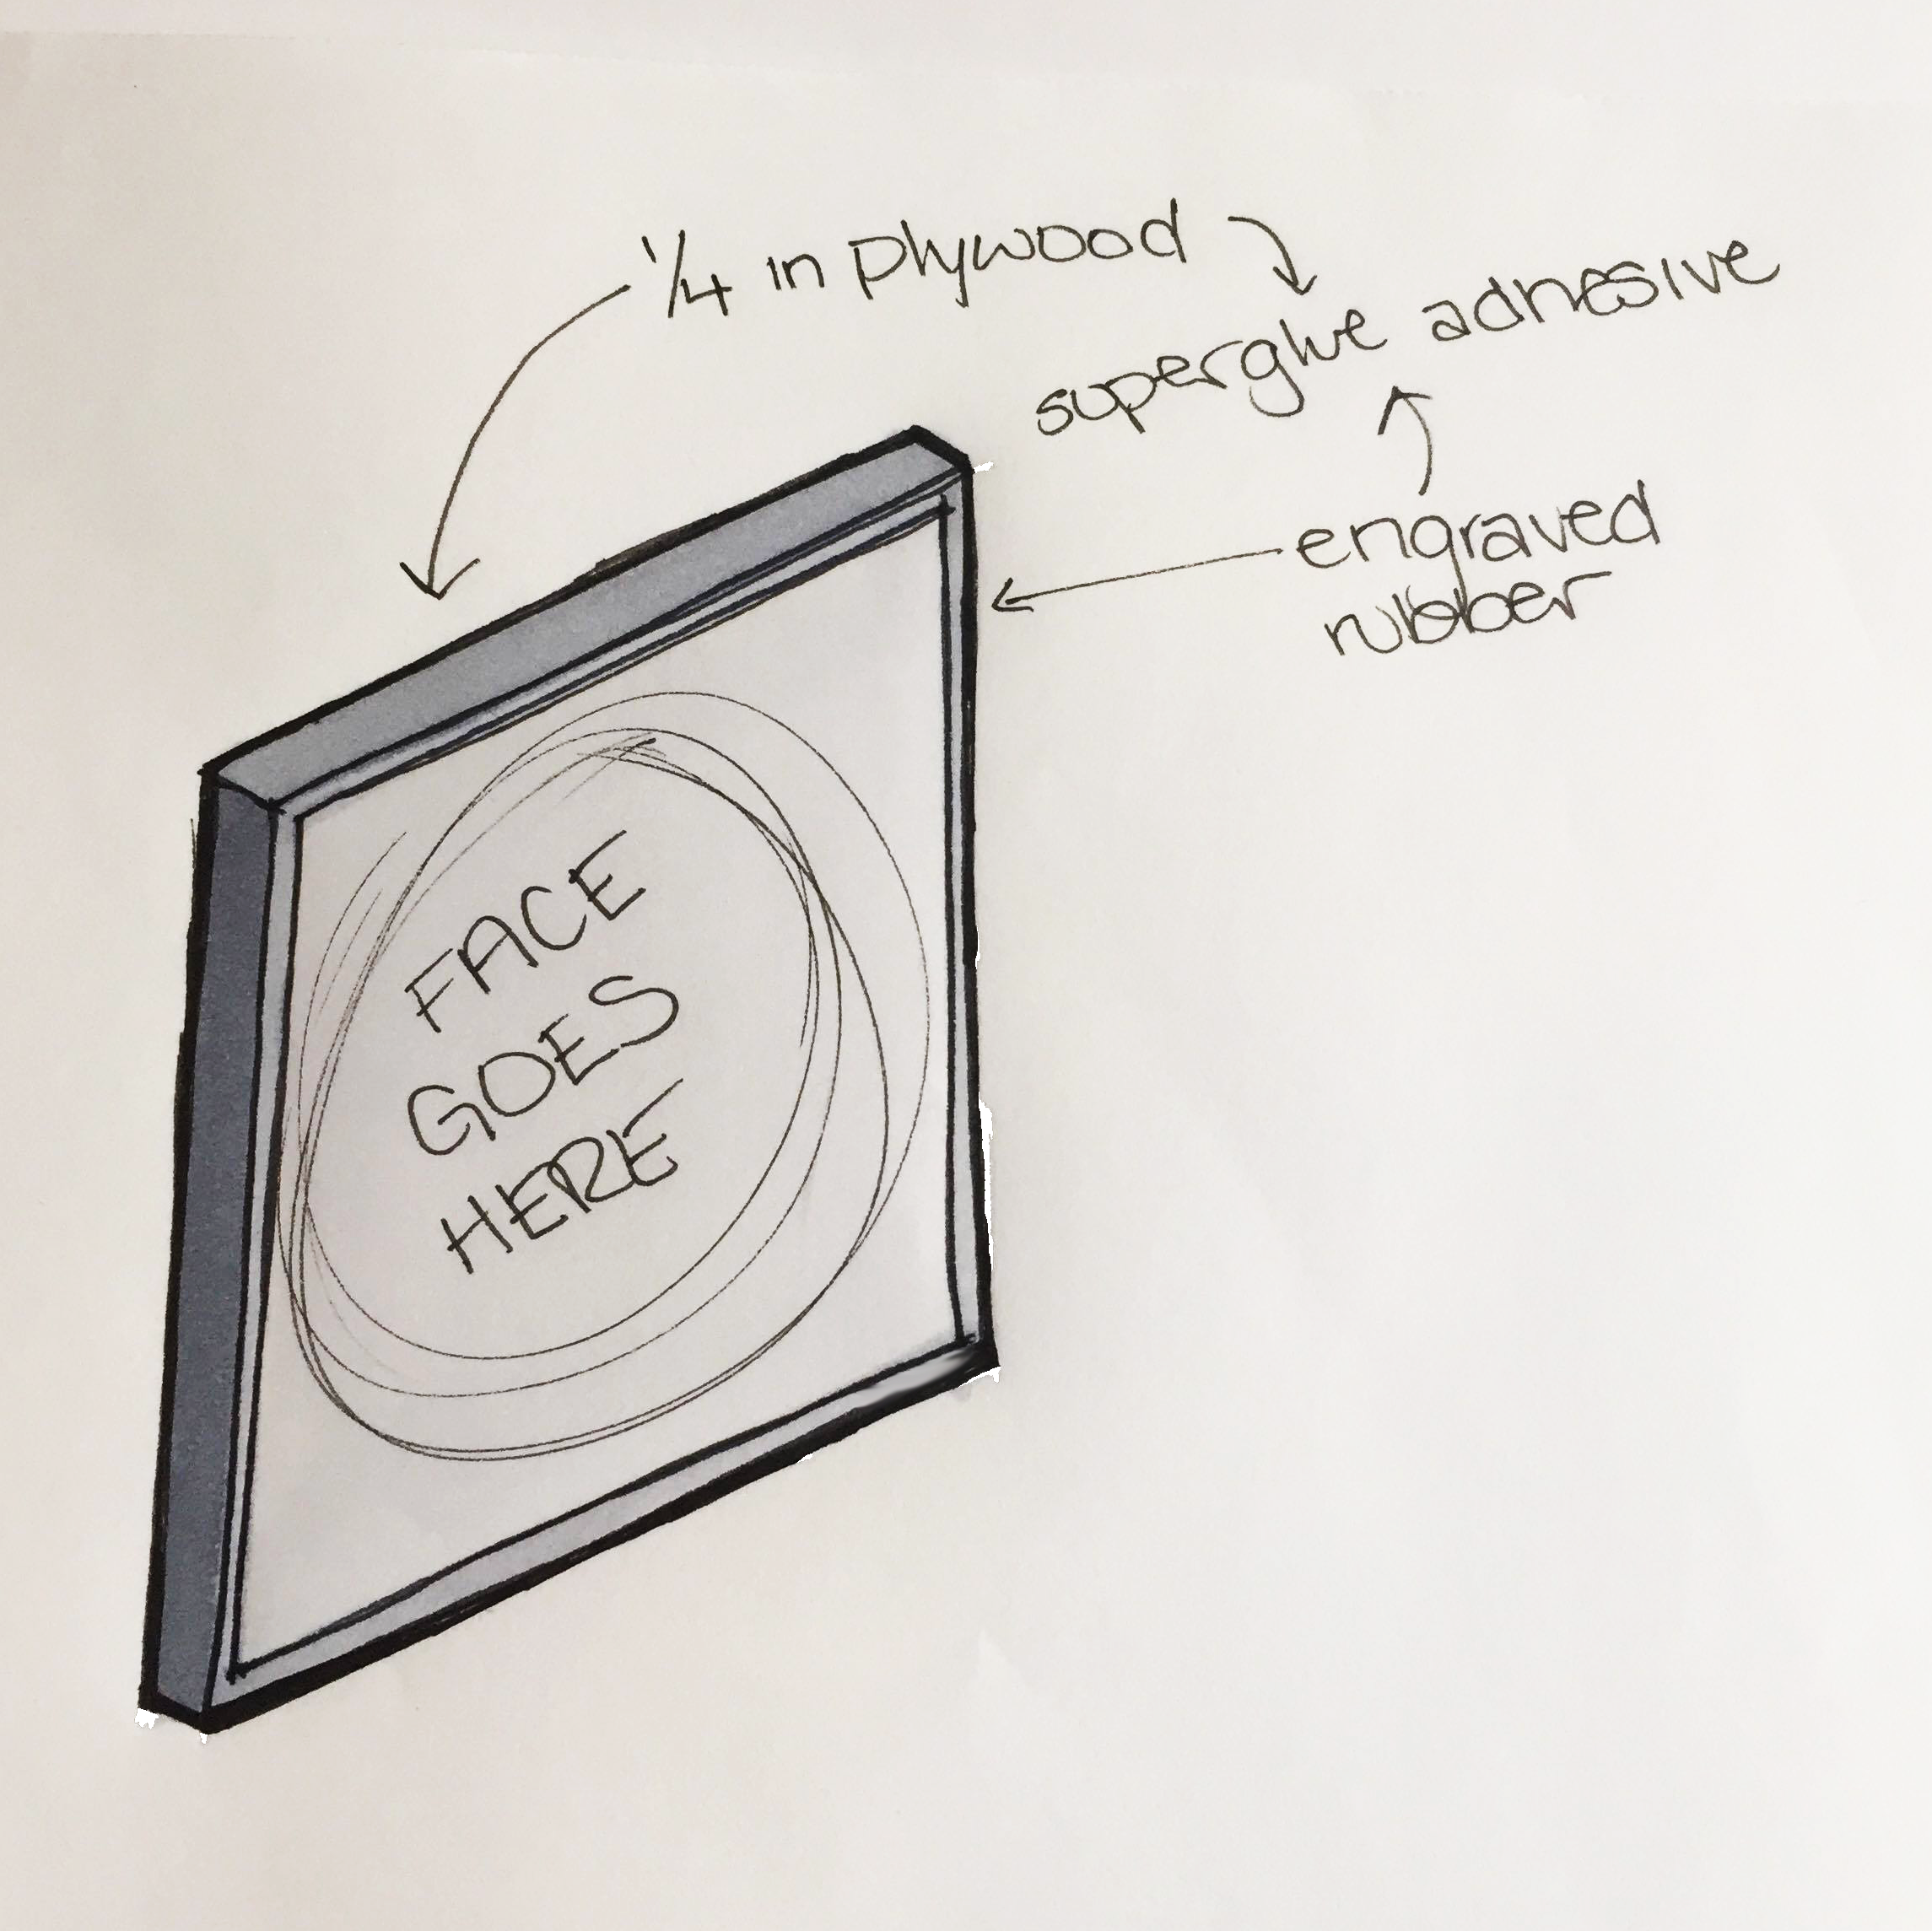 1/4 in plywood
superglue adhesive
engraved
rubber
FACE
GOES
HERE